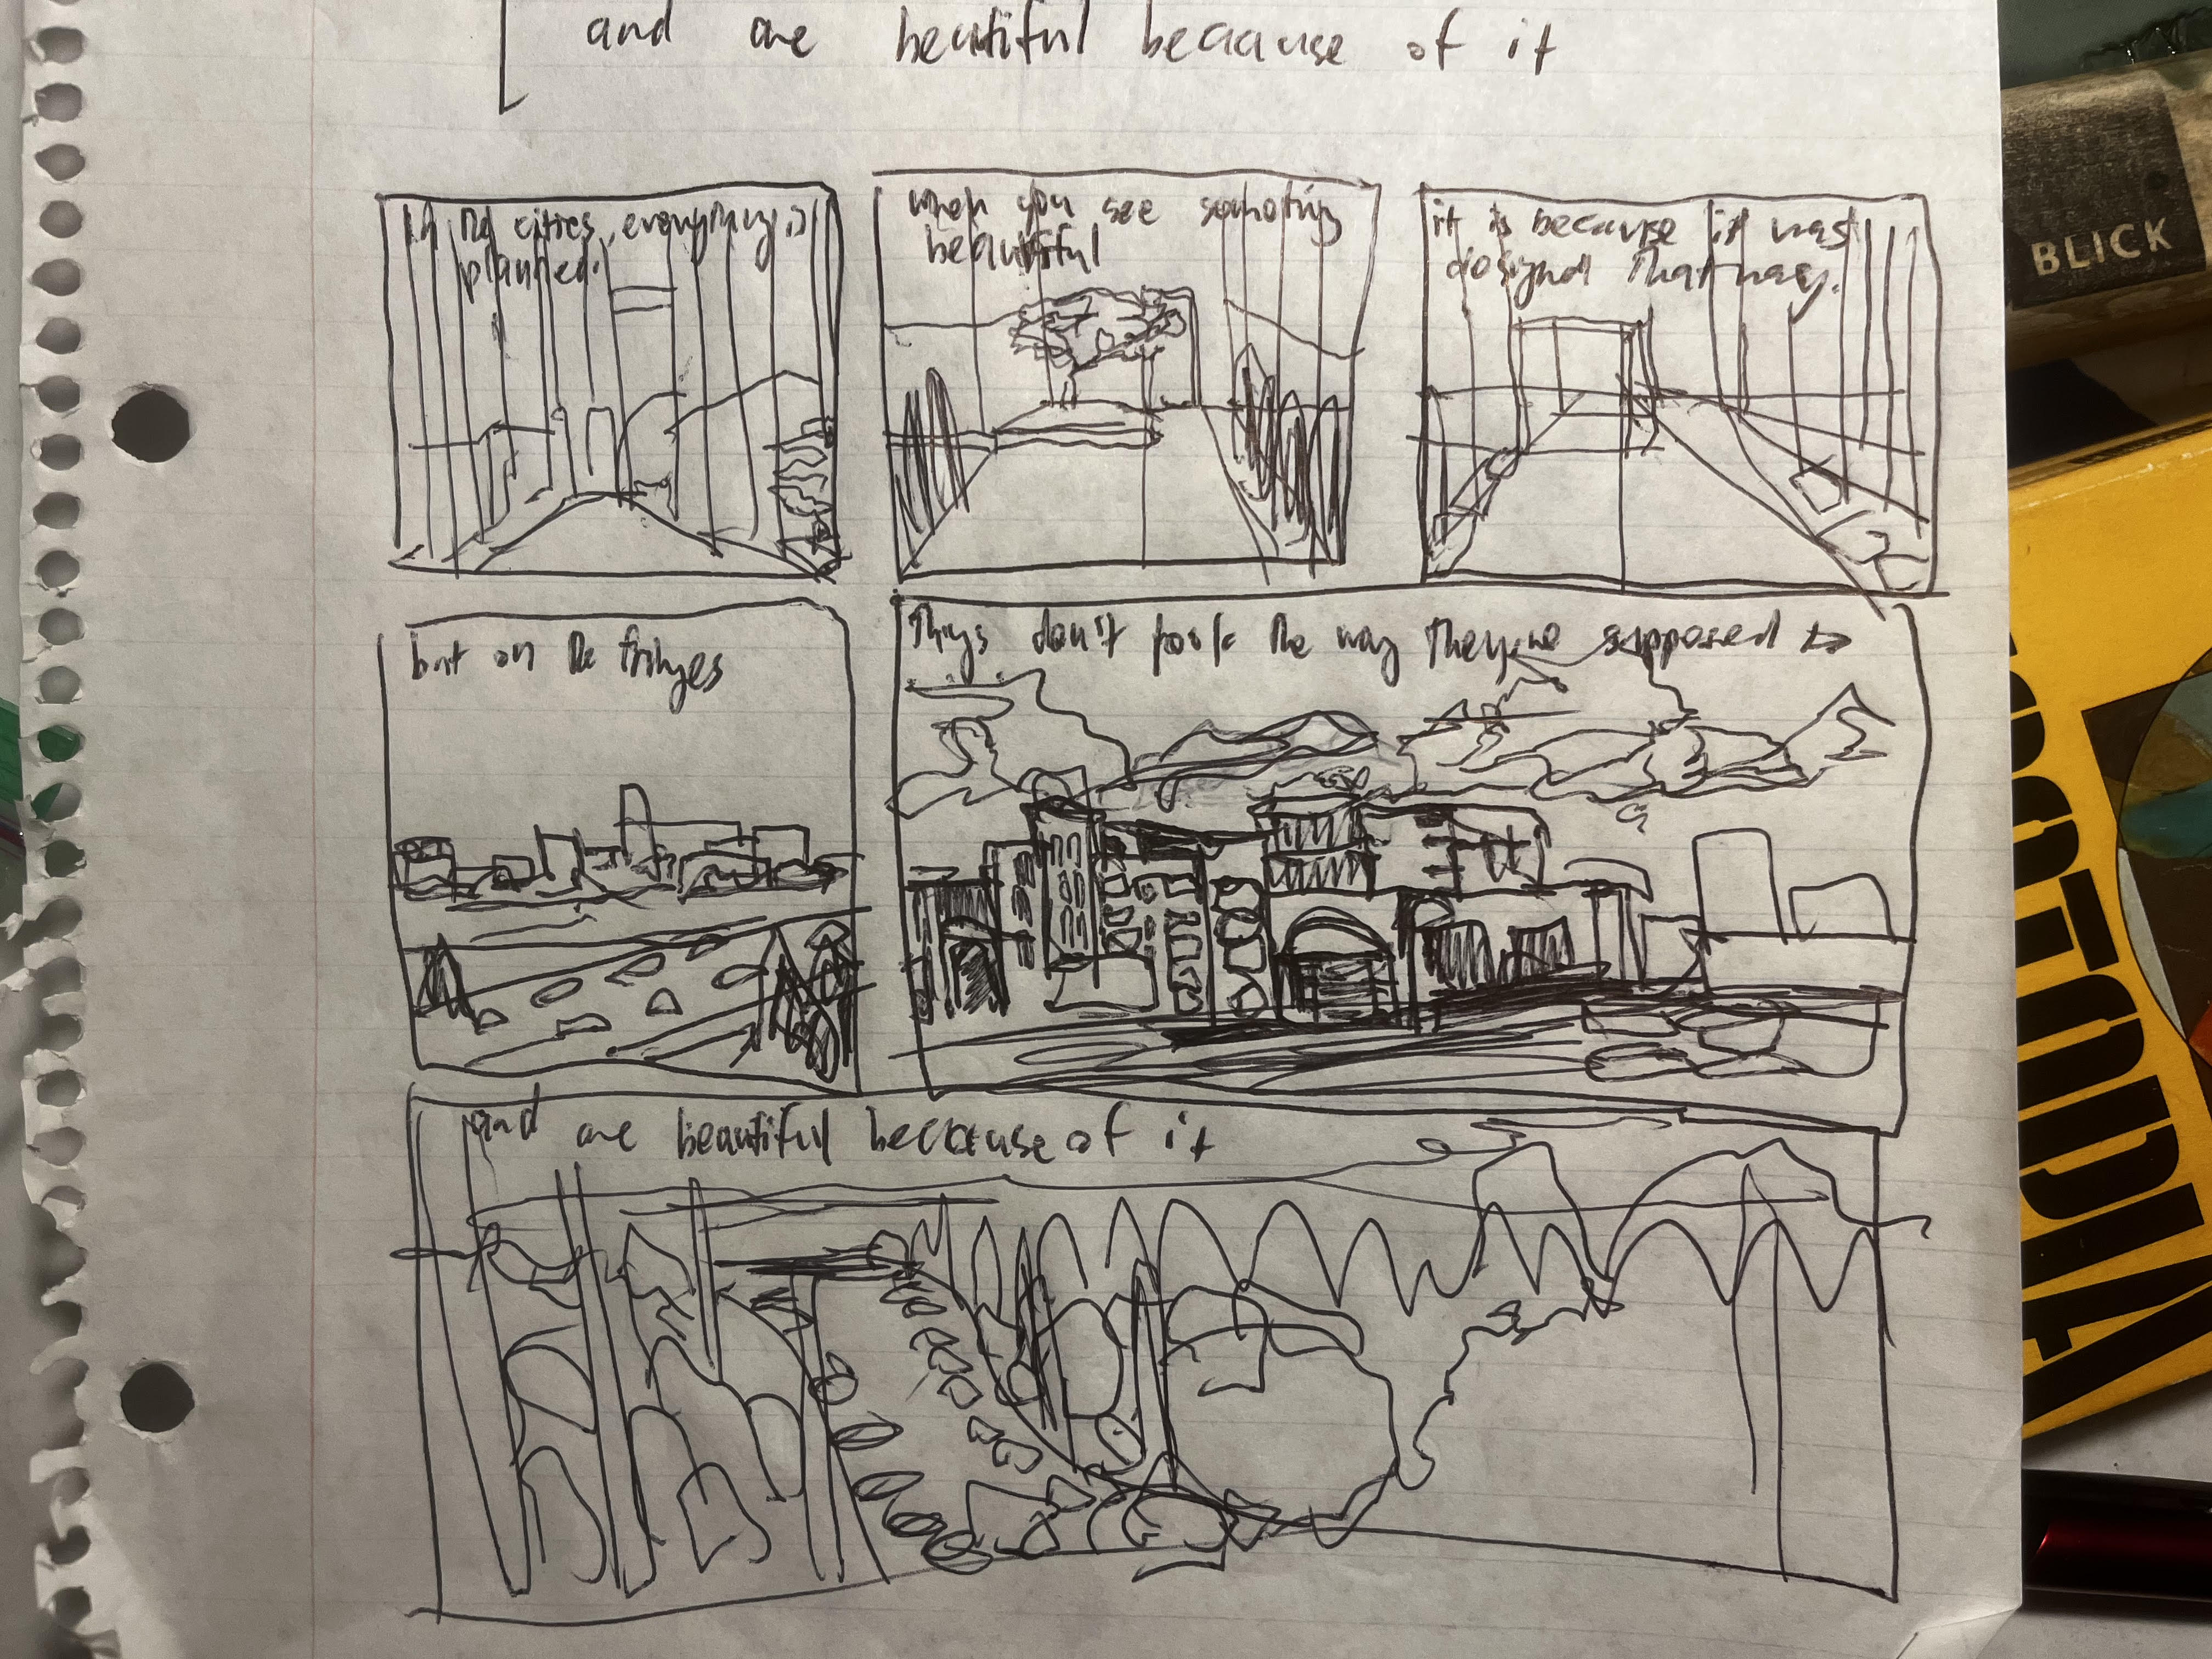 and are beautiful because of it
in the cities, everything is
planned.
when you see something
beautiful
it is because it was
designed that way.
but on the fringes
Things don't look the way they're supposed to
and are beautiful because of it
BLICK